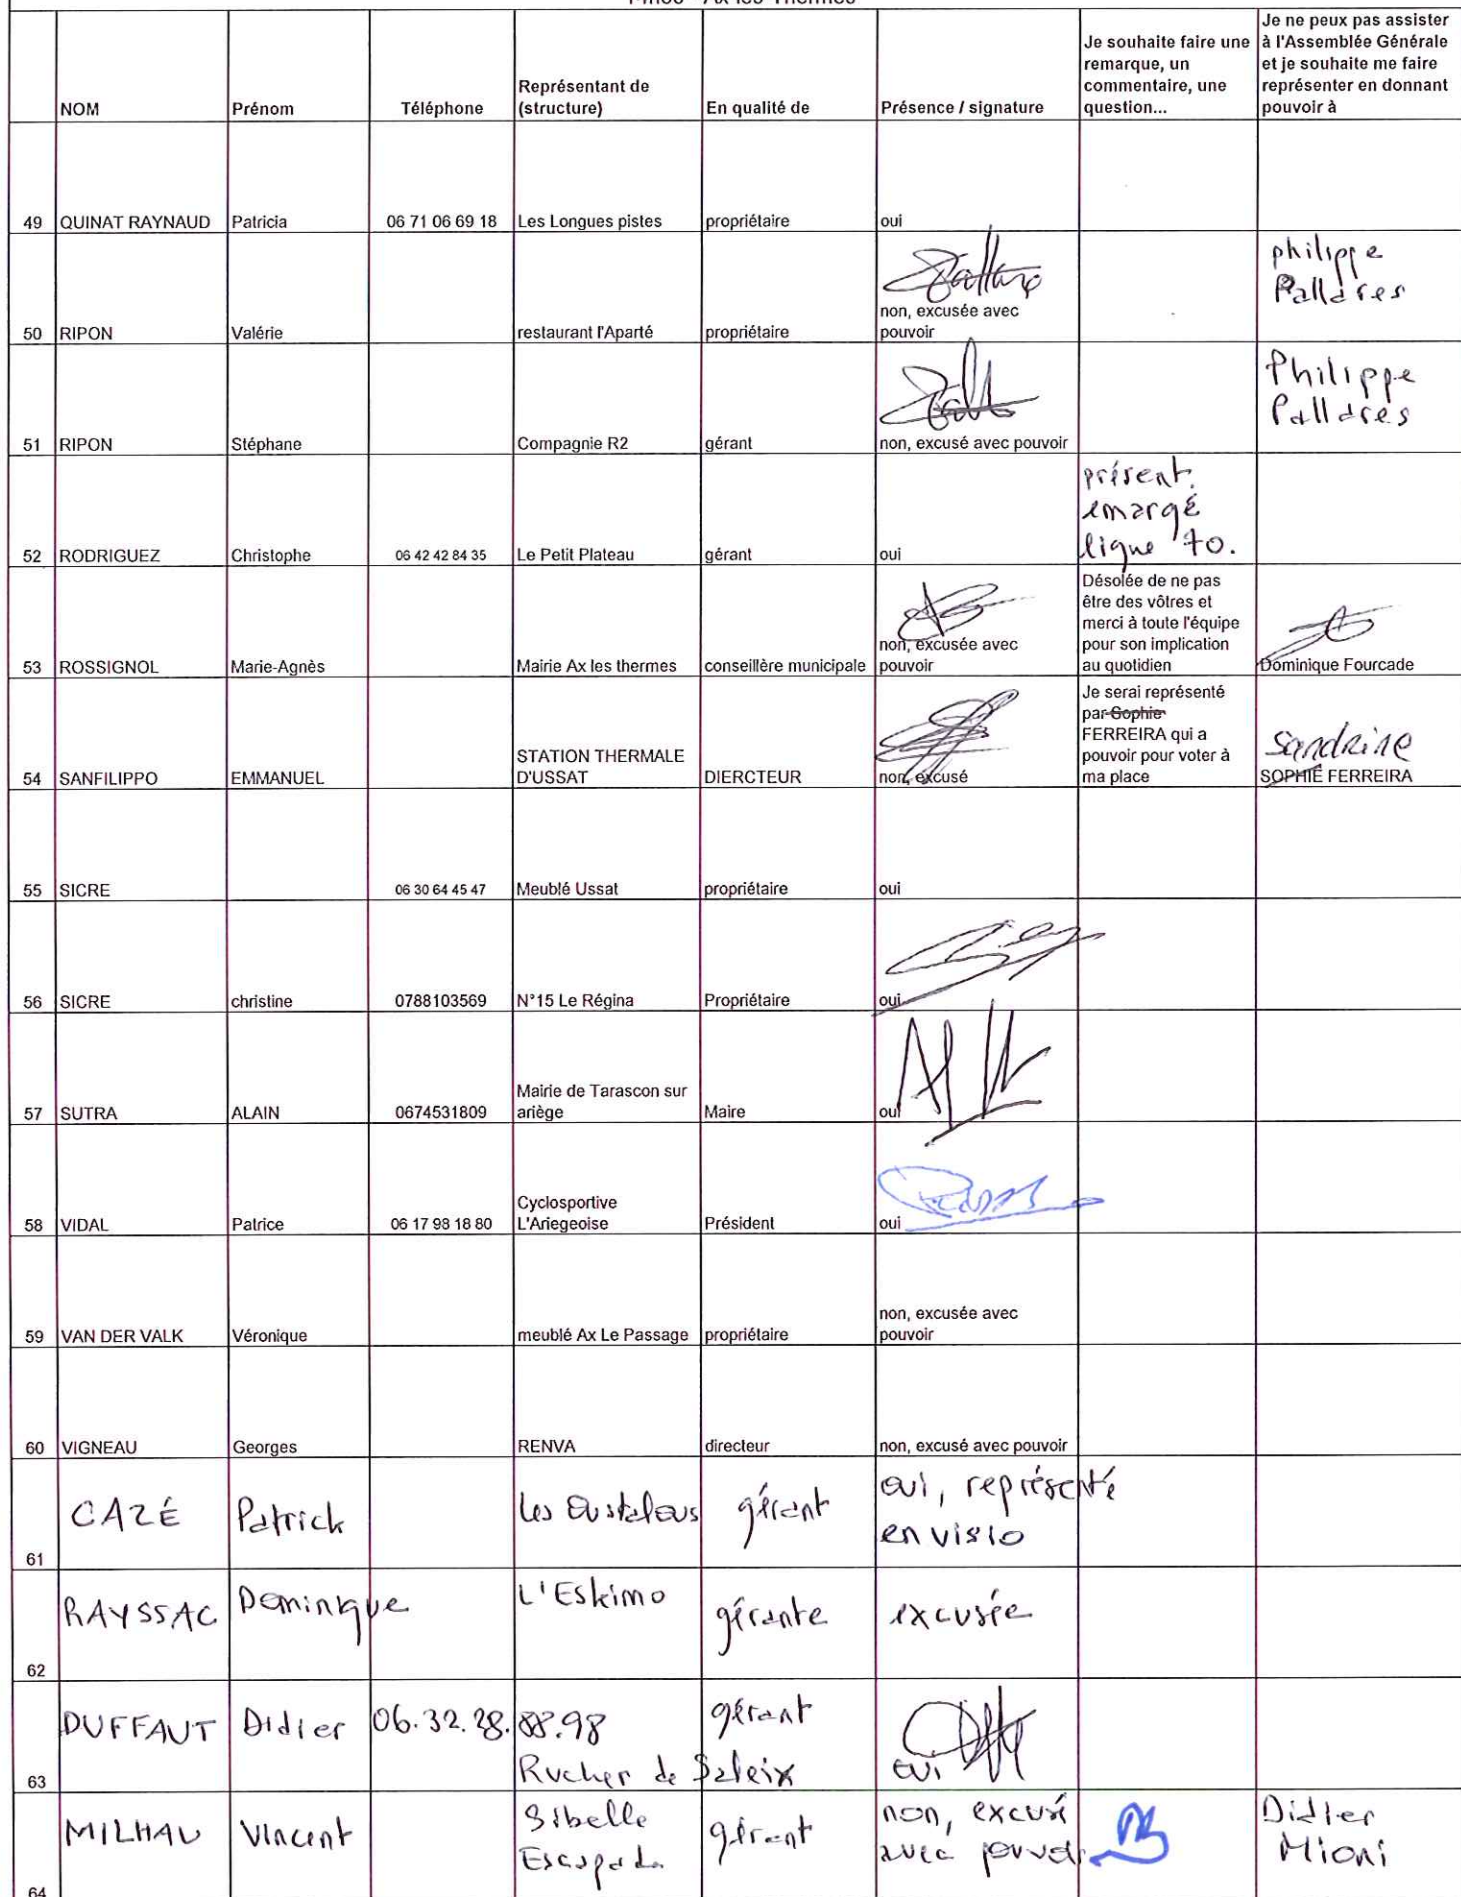 NOM
Prénom
Téléphone
Représentant de
(structure)
En qualité de
Présence / signature
Je souhaite faire une
remarque, un
commentaire, une
question...
Je ne peux pas assister
à l'Assemblée Générale
et je souhaite me faire
représenter en donnant
pouvoir à
49 QUINAT RAYNAUD Patricia 06 71 06 69 18 Les Longues pistes propriétaire oui
50 RIPON Valérie restaurant l'Aparté propriétaire
non, excusée avec
pouvoir
philippe
Pallares
51 RIPON Stéphane Compagnie R2 gérant non, excusé avec pouvoir
Philippe
Pallares
52 RODRIGUEZ Christophe 06 42 42 84 35 Le Petit Plateau gérant oui
présent.
emargé
ligne 70.
53 ROSSIGNOL Marie-Agnès Mairie Ax les thermes conseillère municipale
non, excusée avec
pouvoir
Désolée de ne pas
être des vôtres et
merci à toute l'équipe
pour son implication
au quotidien
Dominique Fourcade
54 SANFILIPPO EMMANUEL
STATION THERMALE
D'USSAT
DIERCTEUR
non, excusé
Je serai représenté
par Sophie
FERREIRA qui a
pouvoir pour voter à
ma place
Sandrine
SOPHIE FERREIRA
55 SICRE 06 30 64 45 47 Meublé Ussat propriétaire oui
56 SICRE christine 0788103569 N°15 Le Régina Propriétaire oui
57 SUTRA ALAIN 0674531809
Mairie de Tarascon sur
ariège
Maire
oui
58 VIDAL Patrice 06 17 98 18 80
Cyclosportive
L'Ariegeoise
Président
oui
59 VAN DER VALK Véronique meublé Ax Le Passage propriétaire
non, excusée avec
pouvoir
60 VIGNEAU Georges RENVA directeur non, excusé avec pouvoir
61 CAZÉ Patrick Les Oustalous gérant
oui, représenté
en visio
62 RAYSSAC Dominique L'Eskimo gérante excusée
63 DUFFAUT Didier 06.32.28.88.98
Rucher de Saleix
gérant
oui
64 MILHAU Vincent
Sibelle
Escapada
gérant
non, excusé
avec pouvoir
Didier
Mioni